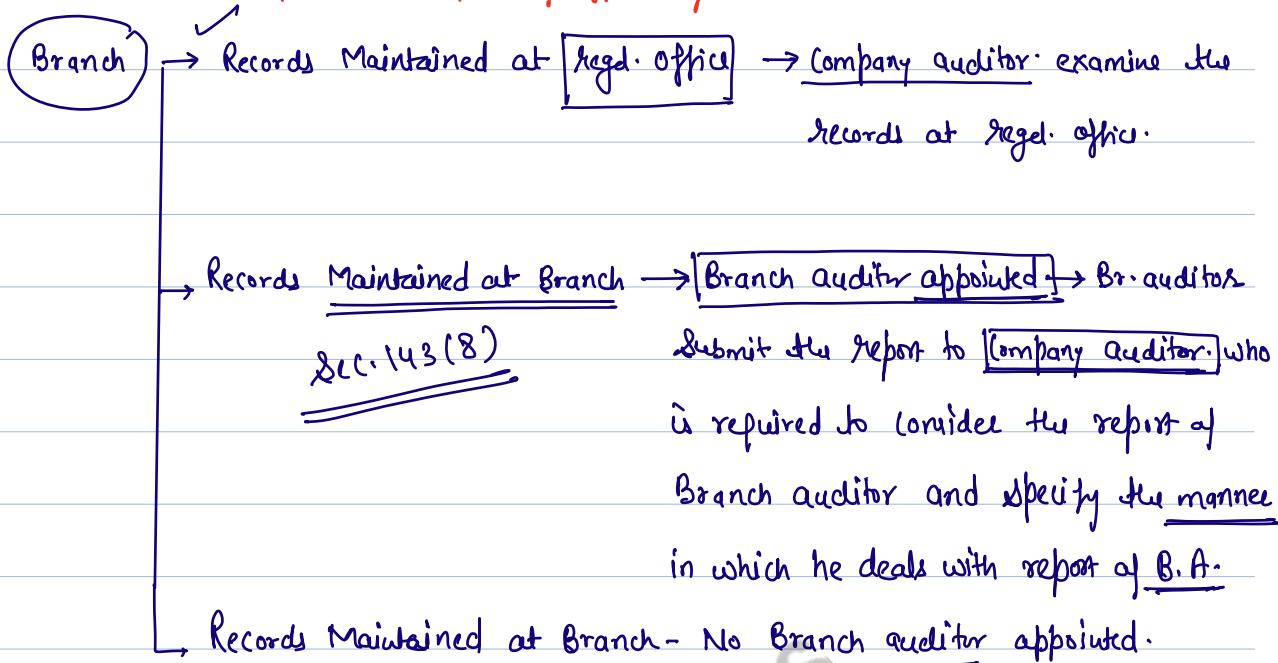 Branch → Records Maintained at regd. office → Company auditor. examine the
records at regd. office.
Records Maintained at Branch → Branch auditor appointed → Br. auditor
Sec. 143(8)
Submit the report to Company auditor. who
is required to consider the report of
Branch auditor and specify the manner
in which he deals with report of B.A.
Records Maintained at Branch - No Branch auditor appointed.